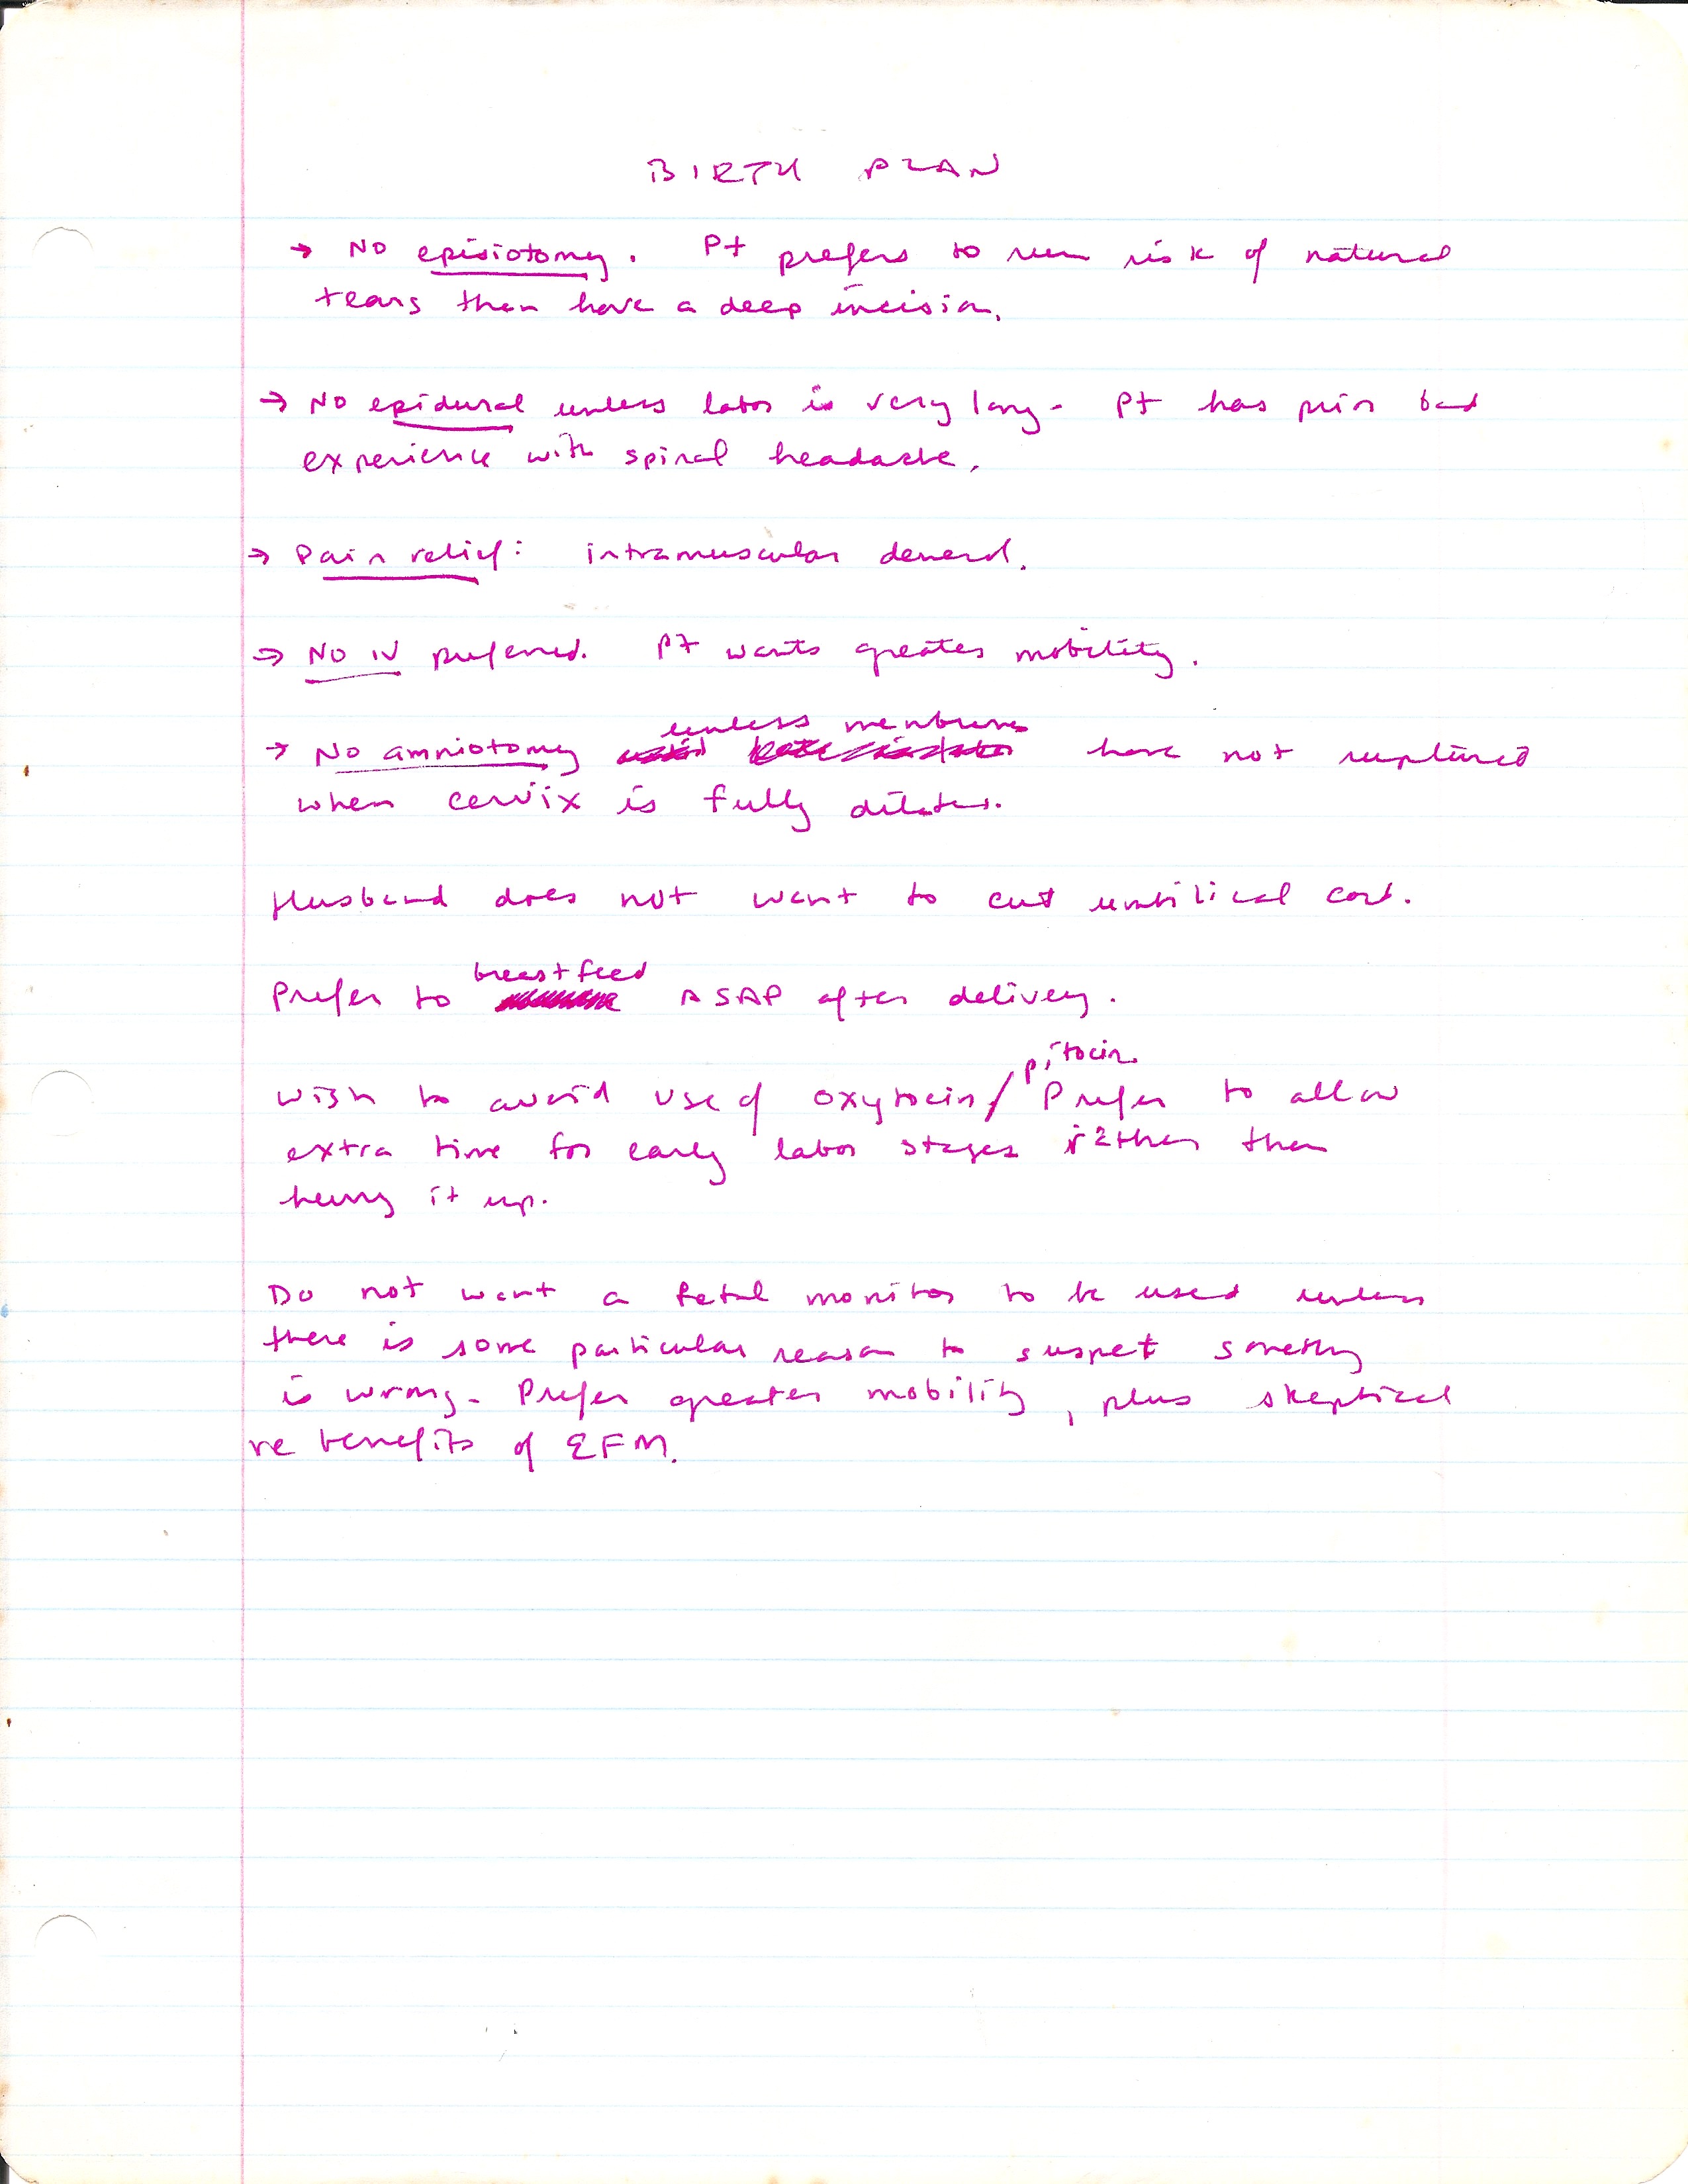 BIRTH PLAN
→ NO episiotomy. Pt prefers to run risk of natural
tears than have a deep incision.
→ NO epidural unless labor is very long. Pt has prior bad
experience with spinal headache.
→ Pain relief: intramuscular demerol.
→ NO IV preferred. Pt wants greater mobility.
unless membranes
→ No amniotomy have not ruptured
when cervix is fully dilated.
Husband does not want to cut umbilical cord.
breastfeed
Prefer to ASAP after delivery.
pitocin.
Wish to avoid use of oxytocin/ Prefer to allow
extra time for early labor stages rather than
hurry it up.
Do not want a fetal monitor to be used unless
there is some particular reason to suspect something
is wrong. Prefer greater mobility, plus skeptical
re benefits of EFM.